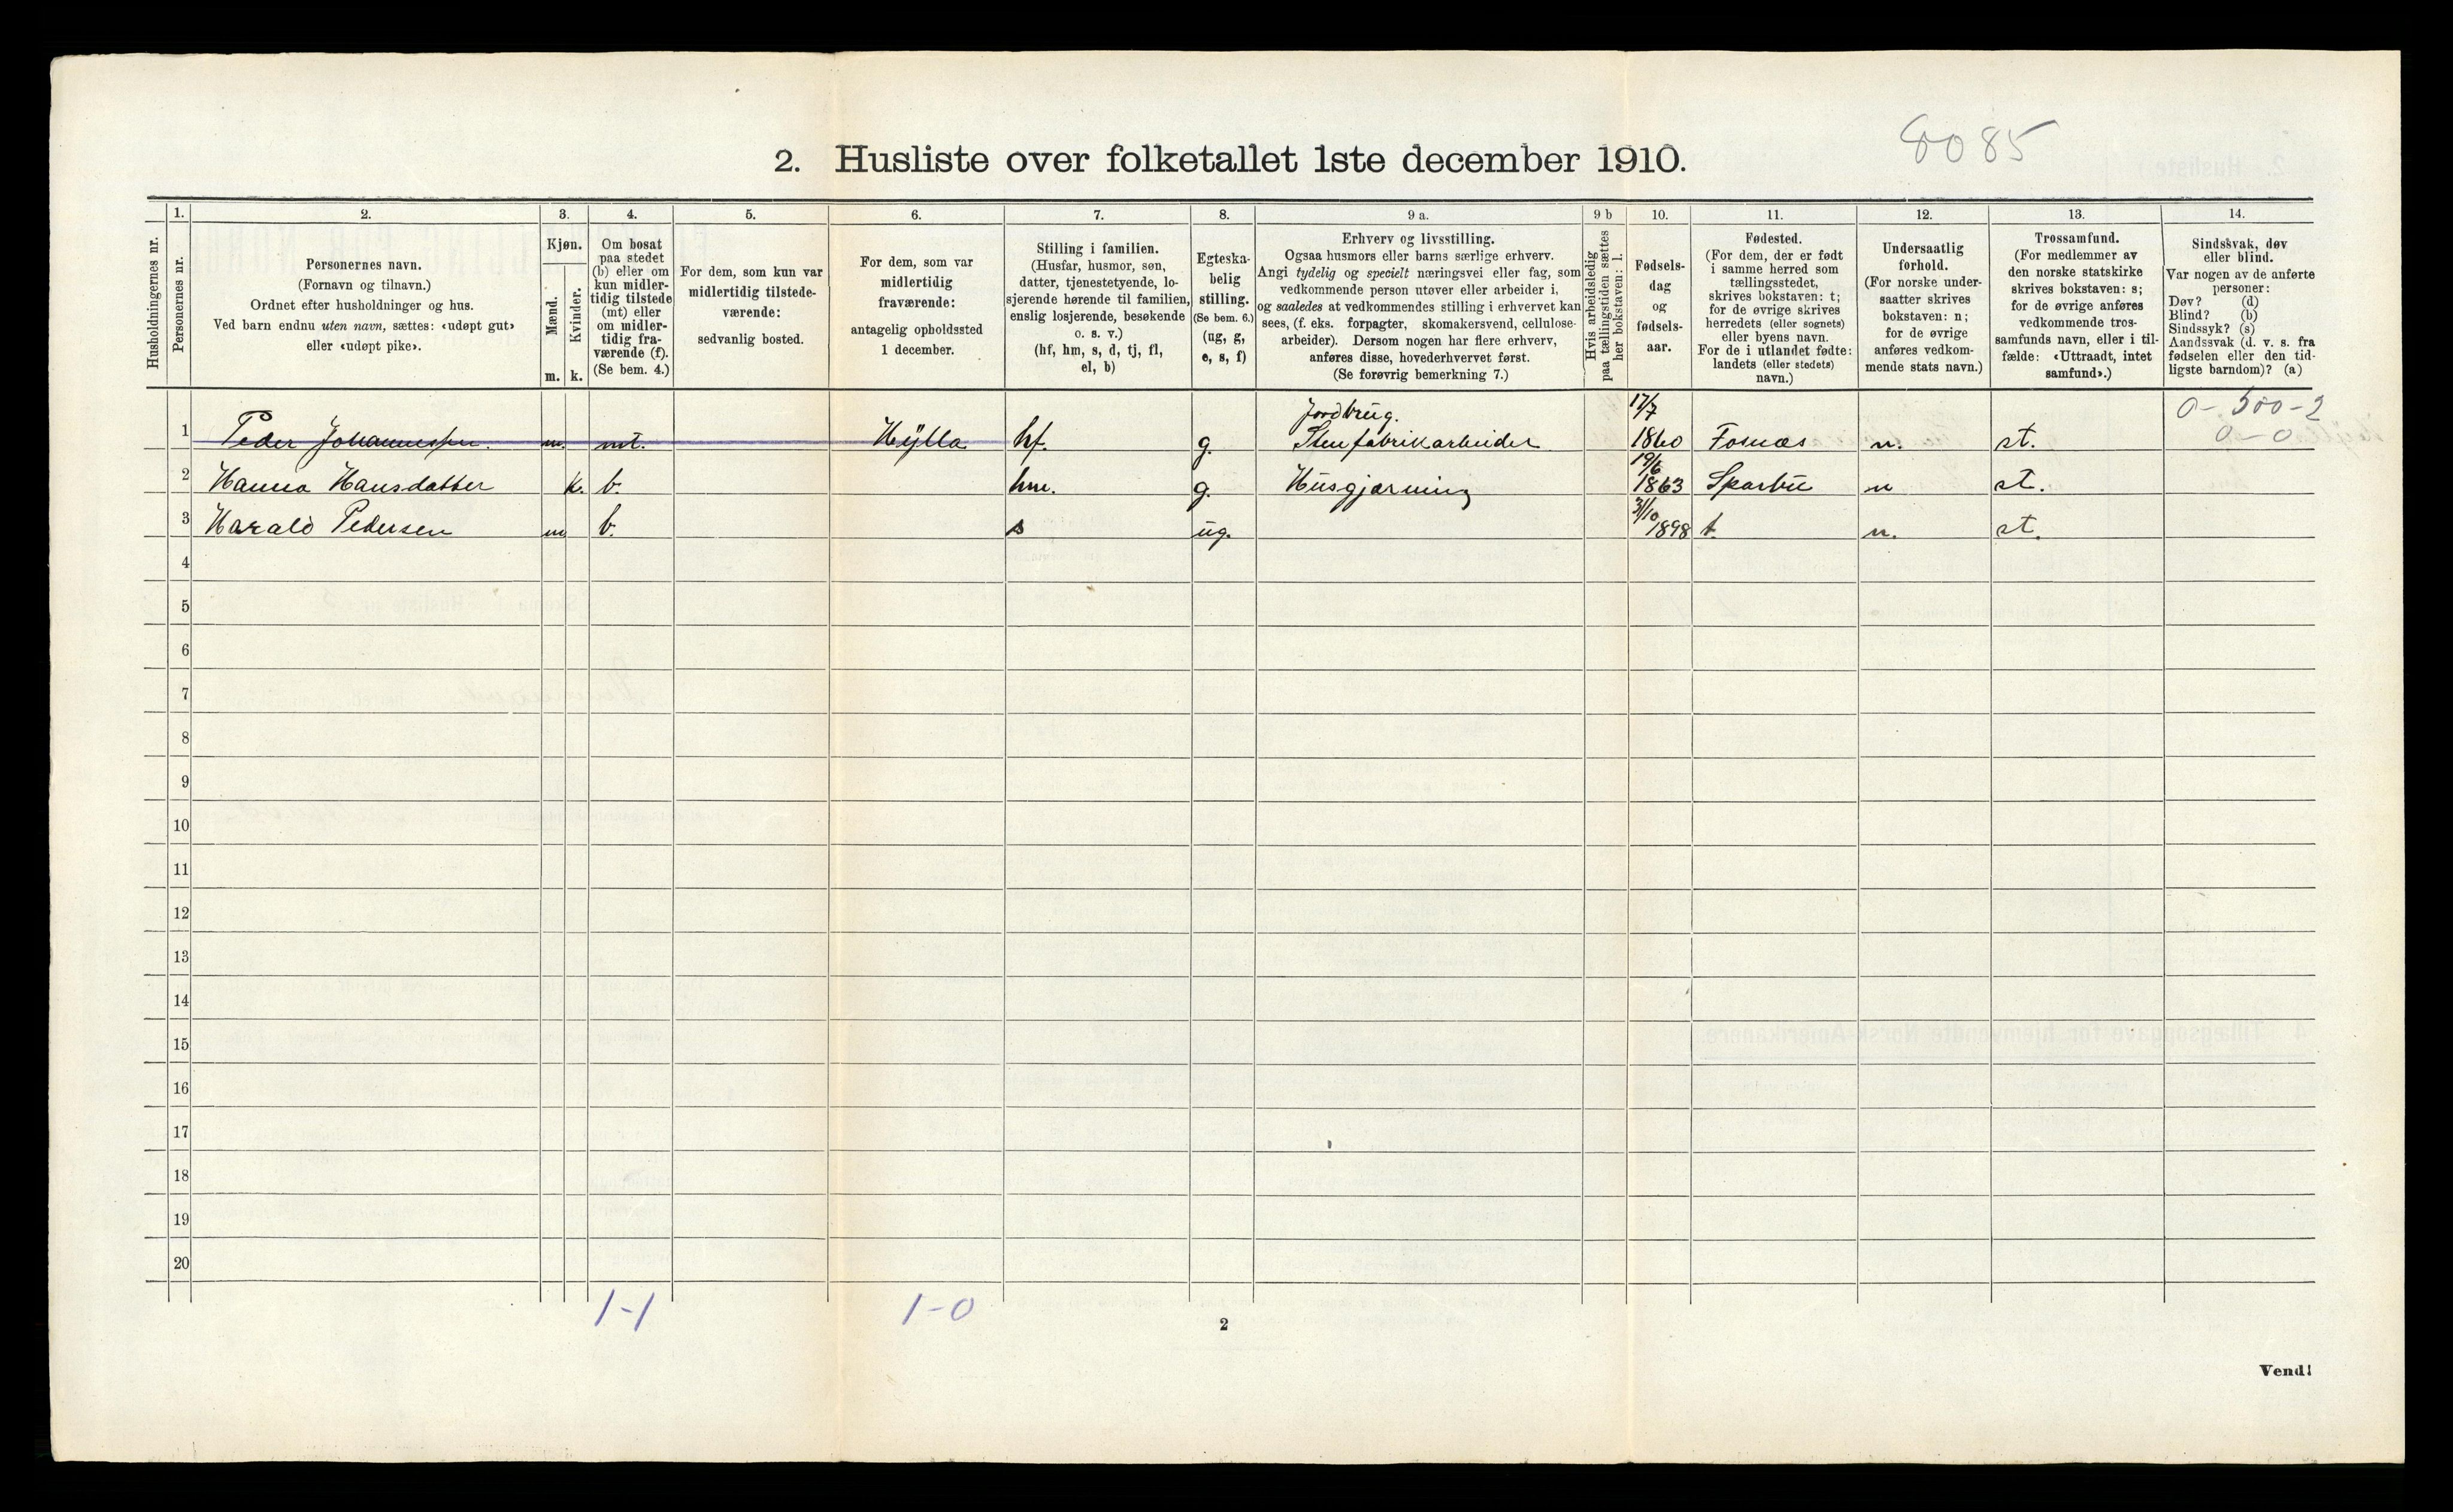 8085
2. Husliste over folketallet 1ste december 1910.
Husholdningernes nr.
1. 2. 3. 4. 5. 6. 7. 8. 9 a. 9 b 10. 11. 12. 13. 14.
Personernes nr.
Personernes navn.
(Fornavn og tilnavn.)
Ordnet efter husholdninger og hus.
Ved barn endnu uten navn, sættes: «udøpt gut»
eller «udøpt pike».
Kjøn.
Mænd.
Kvinder.
m. k.
Om bosat
paa stedet
(b) eller om
kun midler-
tidig tilstede
(mt) eller
om midler-
tidig fra-
værende (f).
(Se bem. 4.)
For dem, som kun var
midlertidig tilstede-
værende:
sedvanlig bosted.
For dem, som var
midlertidig
fraværende:
antagelig opholdssted
1 december.
Stilling i familien.
(Husfar, husmor, søn,
datter, tjenestetyende, lo-
sjerende hørende til familien,
enslig losjerende, besøkende
o. s. v.)
(hf, hm, s, d, tj, fl,
el, b)
Egteska-
belig
stilling.
(Se bem. 6.)
(ug, g,
e, s, f)
Erhverv og livsstilling.
Ogsaa husmors eller barns særlige erhverv.
Angi tydelig og specielt næringsvei eller fag, som
vedkommende person utøver eller arbeider i,
og saaledes at vedkommendes stilling i erhvervet kan
sees, (f. eks. forpagter, skomakersvend, cellulose-
arbeider). Dersom nogen har flere erhverv,
anføres disse, hovederhvervet først.
(Se forøvrig bemerkning 7.)
Hvis arbeidsledig
paa tællingstiden sættes
her bokstaven: l.
Fødsels-
dag
og
fødsels-
aar.
Fødested.
(For dem, der er født
i samme herred som
tællingsstedet,
skrives bokstaven: t;
for de øvrige skrives
herredets (eller sognets)
eller byens navn.
For de i utlandet fødte:
landets (eller stedets)
navn.)
Undersaatlig
forhold.
(For norske under-
saatter skrives
bokstaven: n;
for de øvrige
anføres vedkom-
mende stats navn.)
Trossamfund.
(For medlemmer av
den norske statskirke
skrives bokstaven: s;
for de øvrige anføres
vedkommende tros-
samfunds navn, eller i til-
fælde: «Uttraadt, intet
samfund».)
Sindssvak, døv
eller blind.
Var nogen av de anførte
personer:
Døv? (d)
Blind? (b)
Sindssyk? (s)
Aandssvak (d. v. s. fra
fødselen eller den tid-
ligste barndom)? (a)
Jordbrug. 17/7 0-500-2
1 Peder Johannessen. m. mt. Hylla hf. g. Stenfabrikarbeider 1860 Fosnæs n. st. 0-0
19/6
2 Hanna Hansdatter k. b. hm. g. Husgjerning 1863 Sparbu n st.
31/10
3 Harald Pedersen m b. s ug. 1898 t. n. st.
4
5
6
7
8
9
10
11
12
13
14
15
16
17
18
19
20
1-1 1-0
2
Vend!